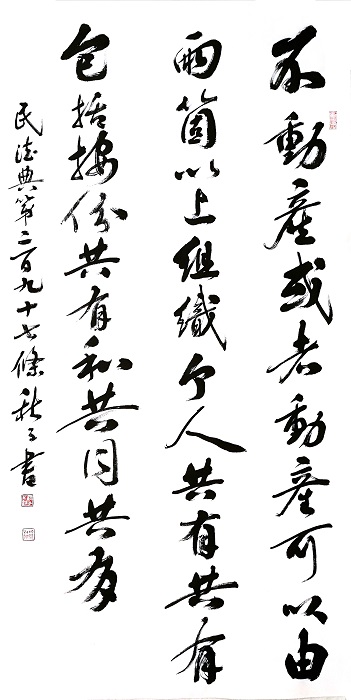 不動產或者動產可以由
兩箇以上組織个人共有共有
包括按份共有和共同共有
民法典第二百九十七條秋書